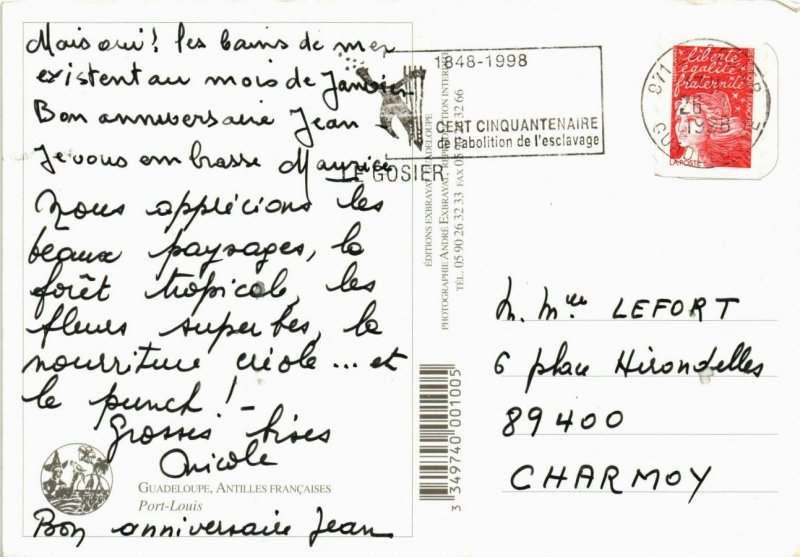 Mais oui! les bains de mer
existent au mois de Janvier
Bon anniversaire Jean
Je vous embrasse Maurice
Nous apprécions les
beaux paysages, la
forêt tropicale, les
fleurs superbes, la
nourriture créole ... et
le punch! -
Grosses bises
Nicole
GUADELOUPE, ANTILLES FRANÇAISES
Port-Louis
Bon anniversaire Jean
1848-1998
CENT CINQUANTENAIRE
de l'abolition de l'esclavage
LE GOSIER
ÉDITIONS EXBRAYAT GUADELOUPE
PHOTOGRAPHIE ANDRÉ EXBRAYAT REPRODUCTION INTERDITE
TÉL. 05 90 26 32 33 FAX 05 90 26 32 66
3 349740 001005
liberté
égalité
fraternité
RÉPUBLIQUE FRANÇAISE
LA POSTE
971
26
1998
M. Mme LEFORT
6 place Hirondelles
89400
CHARMOY